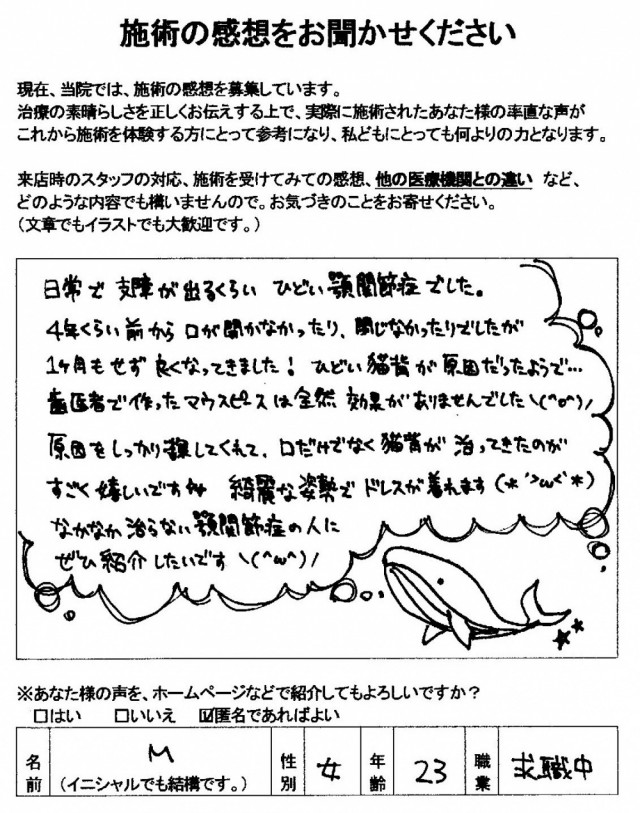 施術の感想をお聞かせください
現在、当院では、施術の感想を募集しています。
治療の素晴らしさを正しくお伝えする上で、実際に施術されたあなた様の率直な声が
これから施術を体験する方にとって参考になり、私どもにとっても何よりの力となります。
来店時のスタッフの対応、施術を受けてみての感想、他の医療機関との違い など、
どのような内容でも構いませんので。お気づきのことをお寄せください。
(文章でもイラストでも大歓迎です。)
日常で 支障が出るくらい ひどい顎関節症でした。
4年くらい前から口が開かなかったり、閉じなかったりでしたが
1ヶ月もせず良くなってきました! ひどい猫背が原因だったようで…
歯医者で作ったマウスピースは全然 効果がありませんでした\(^o^)/
原因をしっかり探してくれて、口だけでなく猫背が治ってきたのが
すごく嬉しいです 綺麗な姿勢でドレスが着れます(*´>ω<`*)
なかなか治らない顎関節症の人に
ぜひ紹介したいです \(^ω^)/
※あなた様の声を、ホームページなどで紹介してもよろしいですか?
□はい □いいえ ☑匿名であればよい
名前 M (イニシャルでも結構です。) 性別 女 年齢 23 職業 求職中